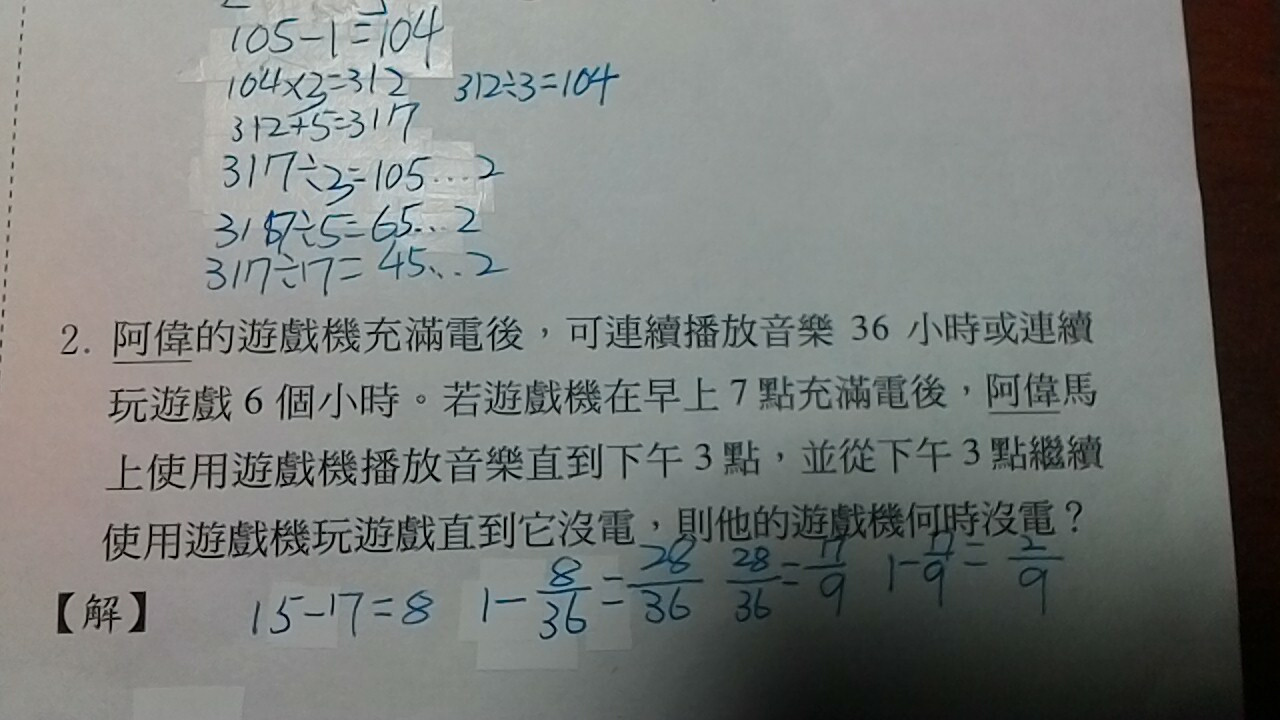 105-1=104
104×3=312 312÷3=104
312+5=317
317÷3=105…2
317÷5=65…2
317÷17=45…2
2. 阿偉的遊戲機充滿電後，可連續播放音樂 36 小時或連續
玩遊戲 6 個小時。若遊戲機在早上 7 點充滿電後，阿偉馬
上使用遊戲機播放音樂直到下午 3 點，並從下午 3 點繼續
使用遊戲機玩遊戲直到它沒電，則他的遊戲機何時沒電？
【解】 15-17=8 1-8/36=28/36 28/36=7/9 1-7/9=2/9